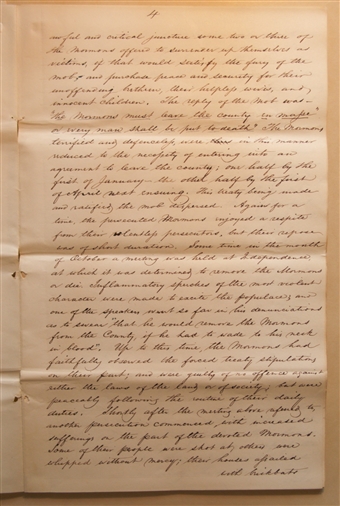 4
awful and critical juncture some two or three of
the Mormons offered to surrender up themselves as
victims, if that would satisfy the fury of the
mob, and purchase peace and security for their
unoffending brethren, their helpless wives, and
innocent children. The reply of the mob was—
"The Mormons must leave the county en masse
or every man shall be put to death" The Mormons
terrified and defenceless, were thus in this manner
reduced to the necessity of entering into an
agreement to leave the county; one half by the
first of January — the other half by the first
of April next ensuing. This treaty being made
and ratified the mob dispersed. Again for a
time, the persecuted Mormons enjoyed a respite
from their relentless persecutors, but their repose
was of short duration. Some time in the month
of October a meeting was held at Independence
at which it was determined to remove the Mormons
or die. Inflammatory speeches of the most violent
character were made to excite the populace; and
one of the speakers went so far in his denunciations
as to swear "that he would remove the Mormons
from the County, if he had to wade to his neck
in blood". Up to this time, the Mormons had
faithfully observed the forced treaty stipulations
on their part; and were guilty of no offence against
either the laws of the land, or of society; but were
peaceably following the routine of their daily
duties. Shortly after the meeting above referred to,
another persecution commenced with increased
sufferings on the part of the devoted Mormons.
Some of their people were shot at, others were
whipped without mercy, their houses assailed
with brickbats